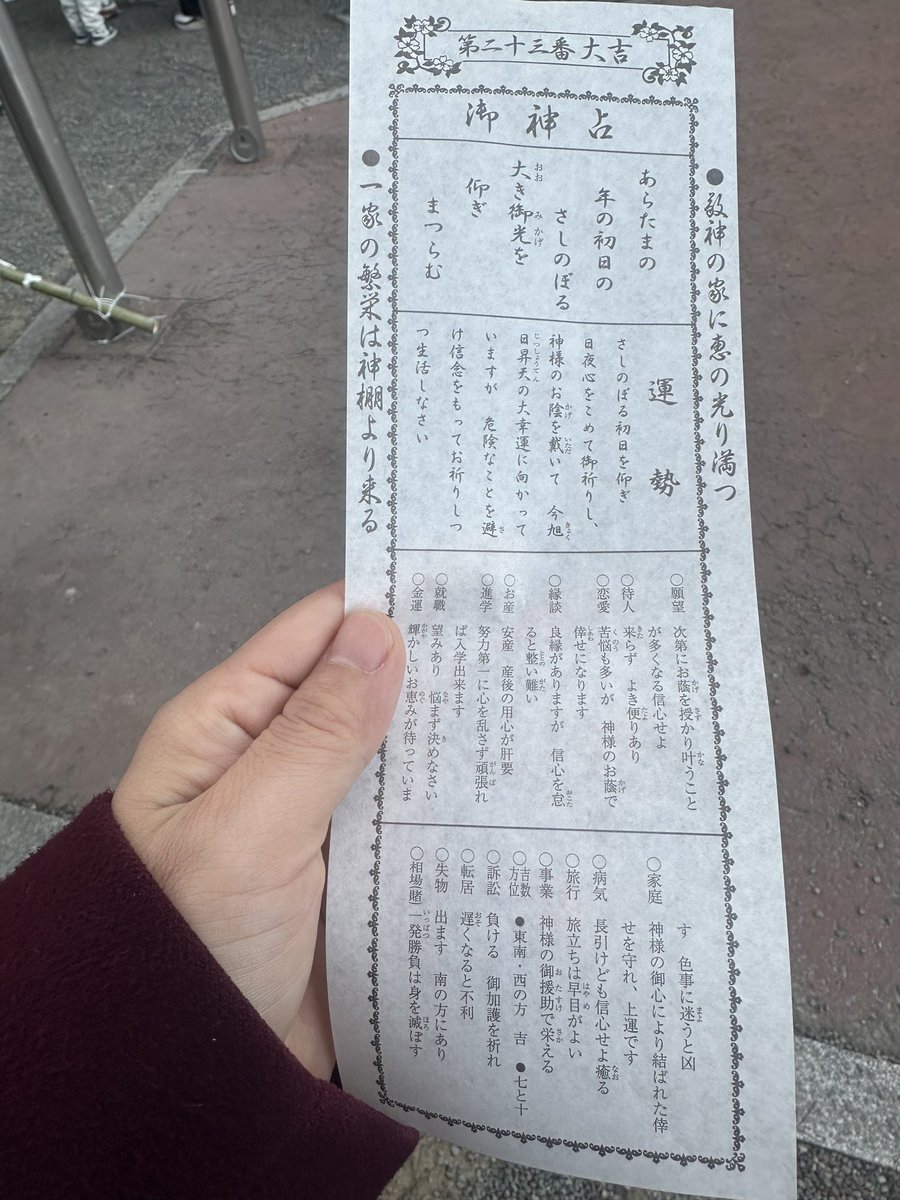 第二十三番大吉
御神占
●敬神の家に恵の光り満つ
あらたまの
年の初日の
さしのぼる
大き御光を
仰ぎ
まつらむ
運勢
さしのぼる初日を仰ぎ
日夜心をこめて御祈りし、
神様のお陰を戴いて 今旭
日昇天の大幸運に向かって
いますが 危険なことを避
け信念をもってお祈りしつ
つ生活しなさい
○願望 次第にお蔭を授かり叶うこと
が多くなる信心せよ
○待人 来らず よき便りあり
○恋愛 苦悩も多いが 神様のお蔭で
倖せになります
○縁談 良縁がありますが 信心を怠
ると整い難い
○お産 安産 産後の用心が肝要
○進学 努力第一に心を乱さず頑張れ
ば入学出来ます
○就職 望みあり 悩まず決めなさい
○金運 輝かしいお恵みが待っていま
す 色事に迷うと凶
○家庭 神様の御心により結ばれた倖
せを守れ、上運です
○病気 長引けども信心せよ癒る
○旅行 旅立ちは早目がよい
○事業 神様の御援助で栄える
○吉数方位 ●東南・西の方 吉 ●七と十
○訴訟 負ける 御加護を祈れ
○転居 遅くなると不利
○失物 出ます 南の方にあり
○相場(賭) 一発勝負は身を滅ぼす
●一家の繁栄は神棚より来る